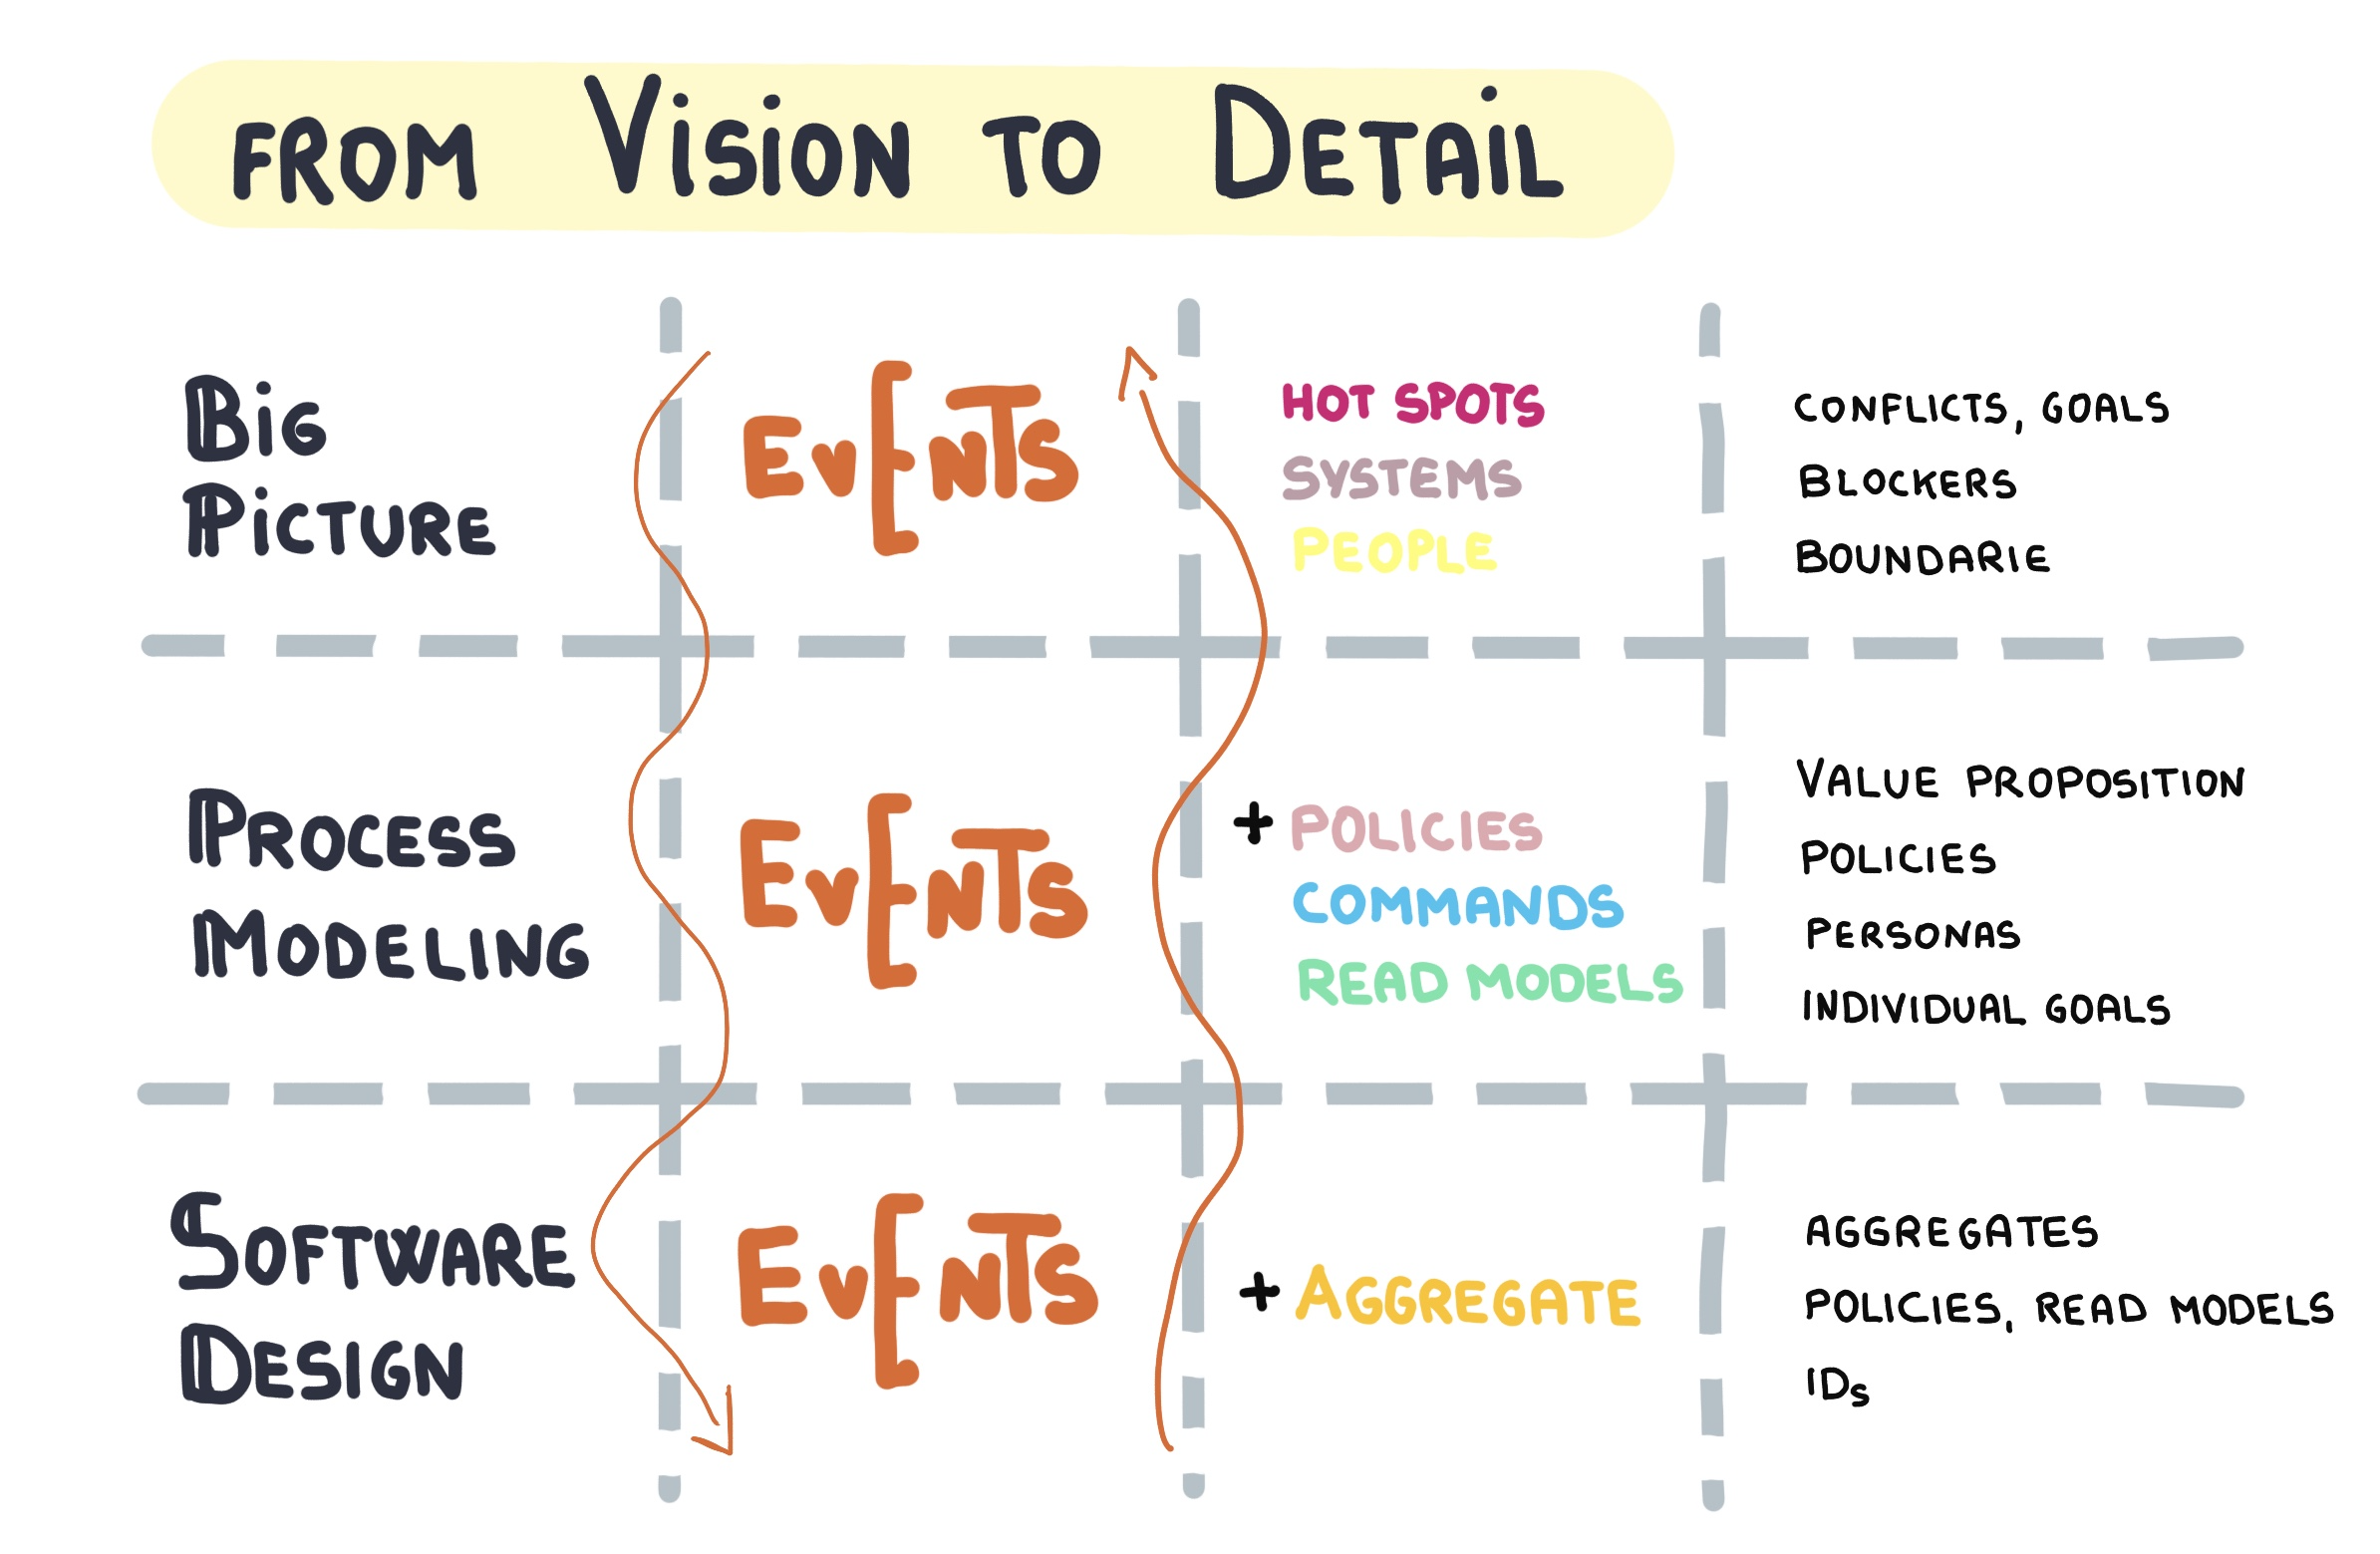 FROM VISION TO DETAIL
BIG
PICTURE
EVENTS
HOT SPOTS
SYSTEMS
PEOPLE
CONFLICTS, GOALS
BLOCKERS
BOUNDARIE
PROCESS
MODELING
EVENTS
+ POLICIES
COMMANDS
READ MODELS
VALUE PROPOSITION
POLICIES
PERSONAS
INDIVIDUAL GOALS
SOFTWARE
DESIGN
EVENTS
+ AGGREGATE
AGGREGATES
POLICIES, READ MODELS
IDs